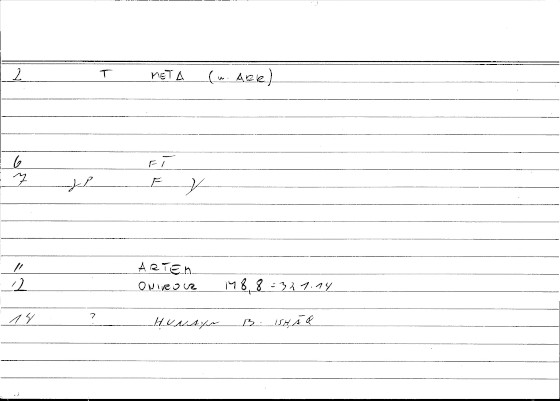 2 T META (w. ARR)
6 FI
7 γP F γ
11 ARTEM
12 ONIROCR 178,8 = 321.14
14 ? HUNAYN B. ISHĀQ